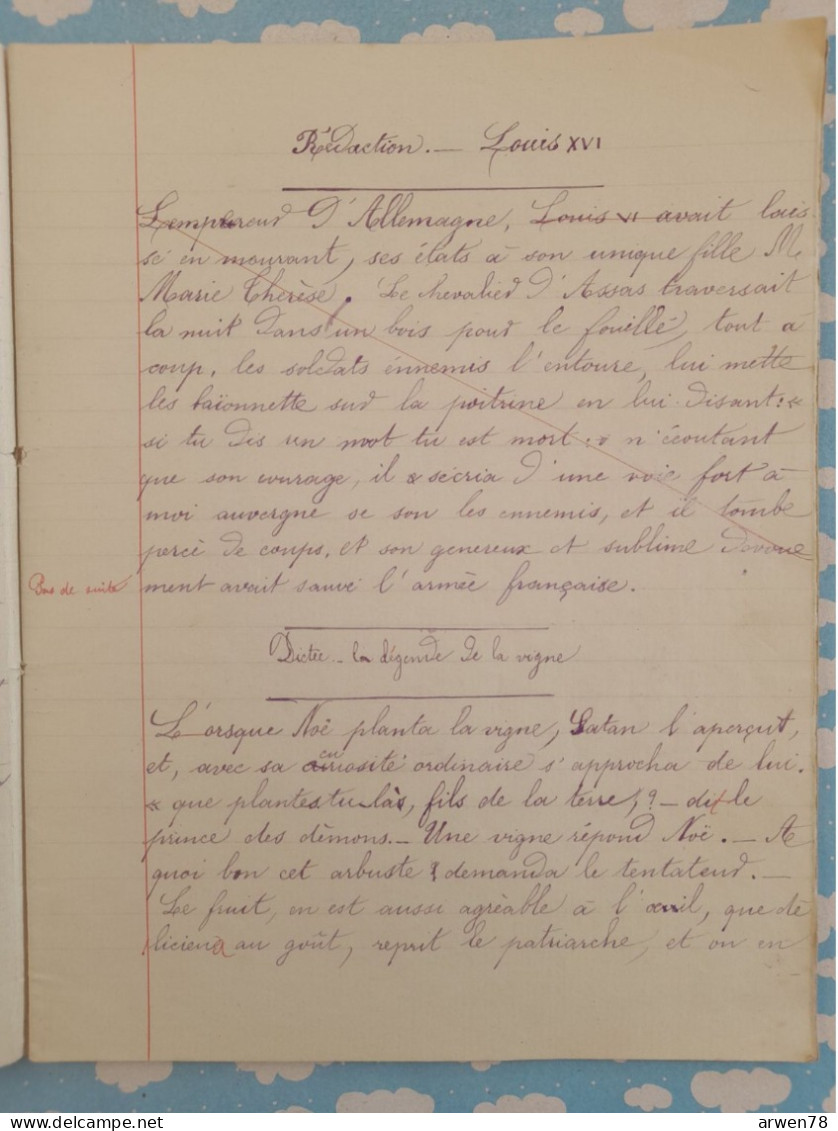 Rédaction. — Louis XVI
L'empereur d'Allemagne, Louis VI avait lais
sé en mourant, ses états à son unique fille M
Marie Thérèse. Le chevalier d'Assas traversait
la nuit dans un bois pour le fouillé, tout à
coup, les soldats énnemis l'entoure, lui mette
les baïonnette sur la poitrine en lui disant : «
si tu dis un moot tu est mort : » n'écoutant
que son courage, il sécria d'une voie fort à
moi auvergne se son les ennemis, et il tombe
percè de coups, et son genereux et sublime dévoue
Pas de suite
ment avait sauvé l'armée française.
Dictée — la légende de la vigne
L'orsque Noë planta la vigne, Satan l'aperçut,
et, avec sa curiosité ordinaire s'approcha de lui.
« que plantes tu làs, fils de la terre, ? — dit le
prince des dèmons. — Une vigne répond Noë. — A
quoi bon cet arbuste ? demanda le tentateur. —
Le fruit, en est aussi agrèable à l'œuil, que dé
licieux au goût, reprit le patriarche, et on en
arwen78